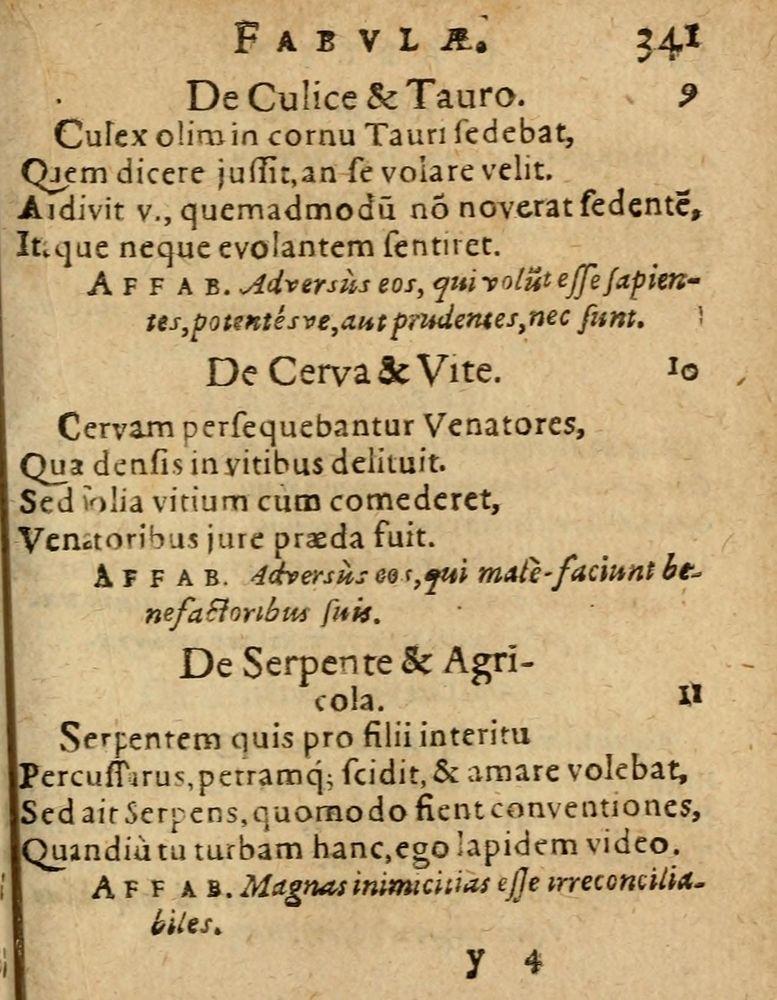 FABVLÆ. 341
De Culice & Tauro. 9
Culex olim in cornu Tauri ſedebat,
Quem dicere juſſit, an ſe volare velit.
Audivit v., quemadmodū nō noverat ſedentē,
Itaque neque evolantem ſentiret.
AFFAB. Adversùs eos, qui volūt eſſe ſapien-
tes, potentésve, aut prudentes, nec ſunt.
De Cerva & Vite. 10
Cervam perſequebantur Venatores,
Qua denſis in vitibus delituit.
Sed folia vitium cùm comederet,
Venatoribus jure præda fuit.
AFFAB. Adversùs eos, qui malè-faciunt be-
nefactoribus ſuis.
De Serpente & Agri-
cola. 11
Serpentem quis pro filii interitu
Percuſſurus, petramq́; ſcidit, & amare volebat,
Sed ait Serpens, quomodo fient conventiones,
Quandiù tu turbam hanc, ego lapidem video.
AFFAB. Magnas inimicitias eſſe irreconcilia-
biles.
y 4